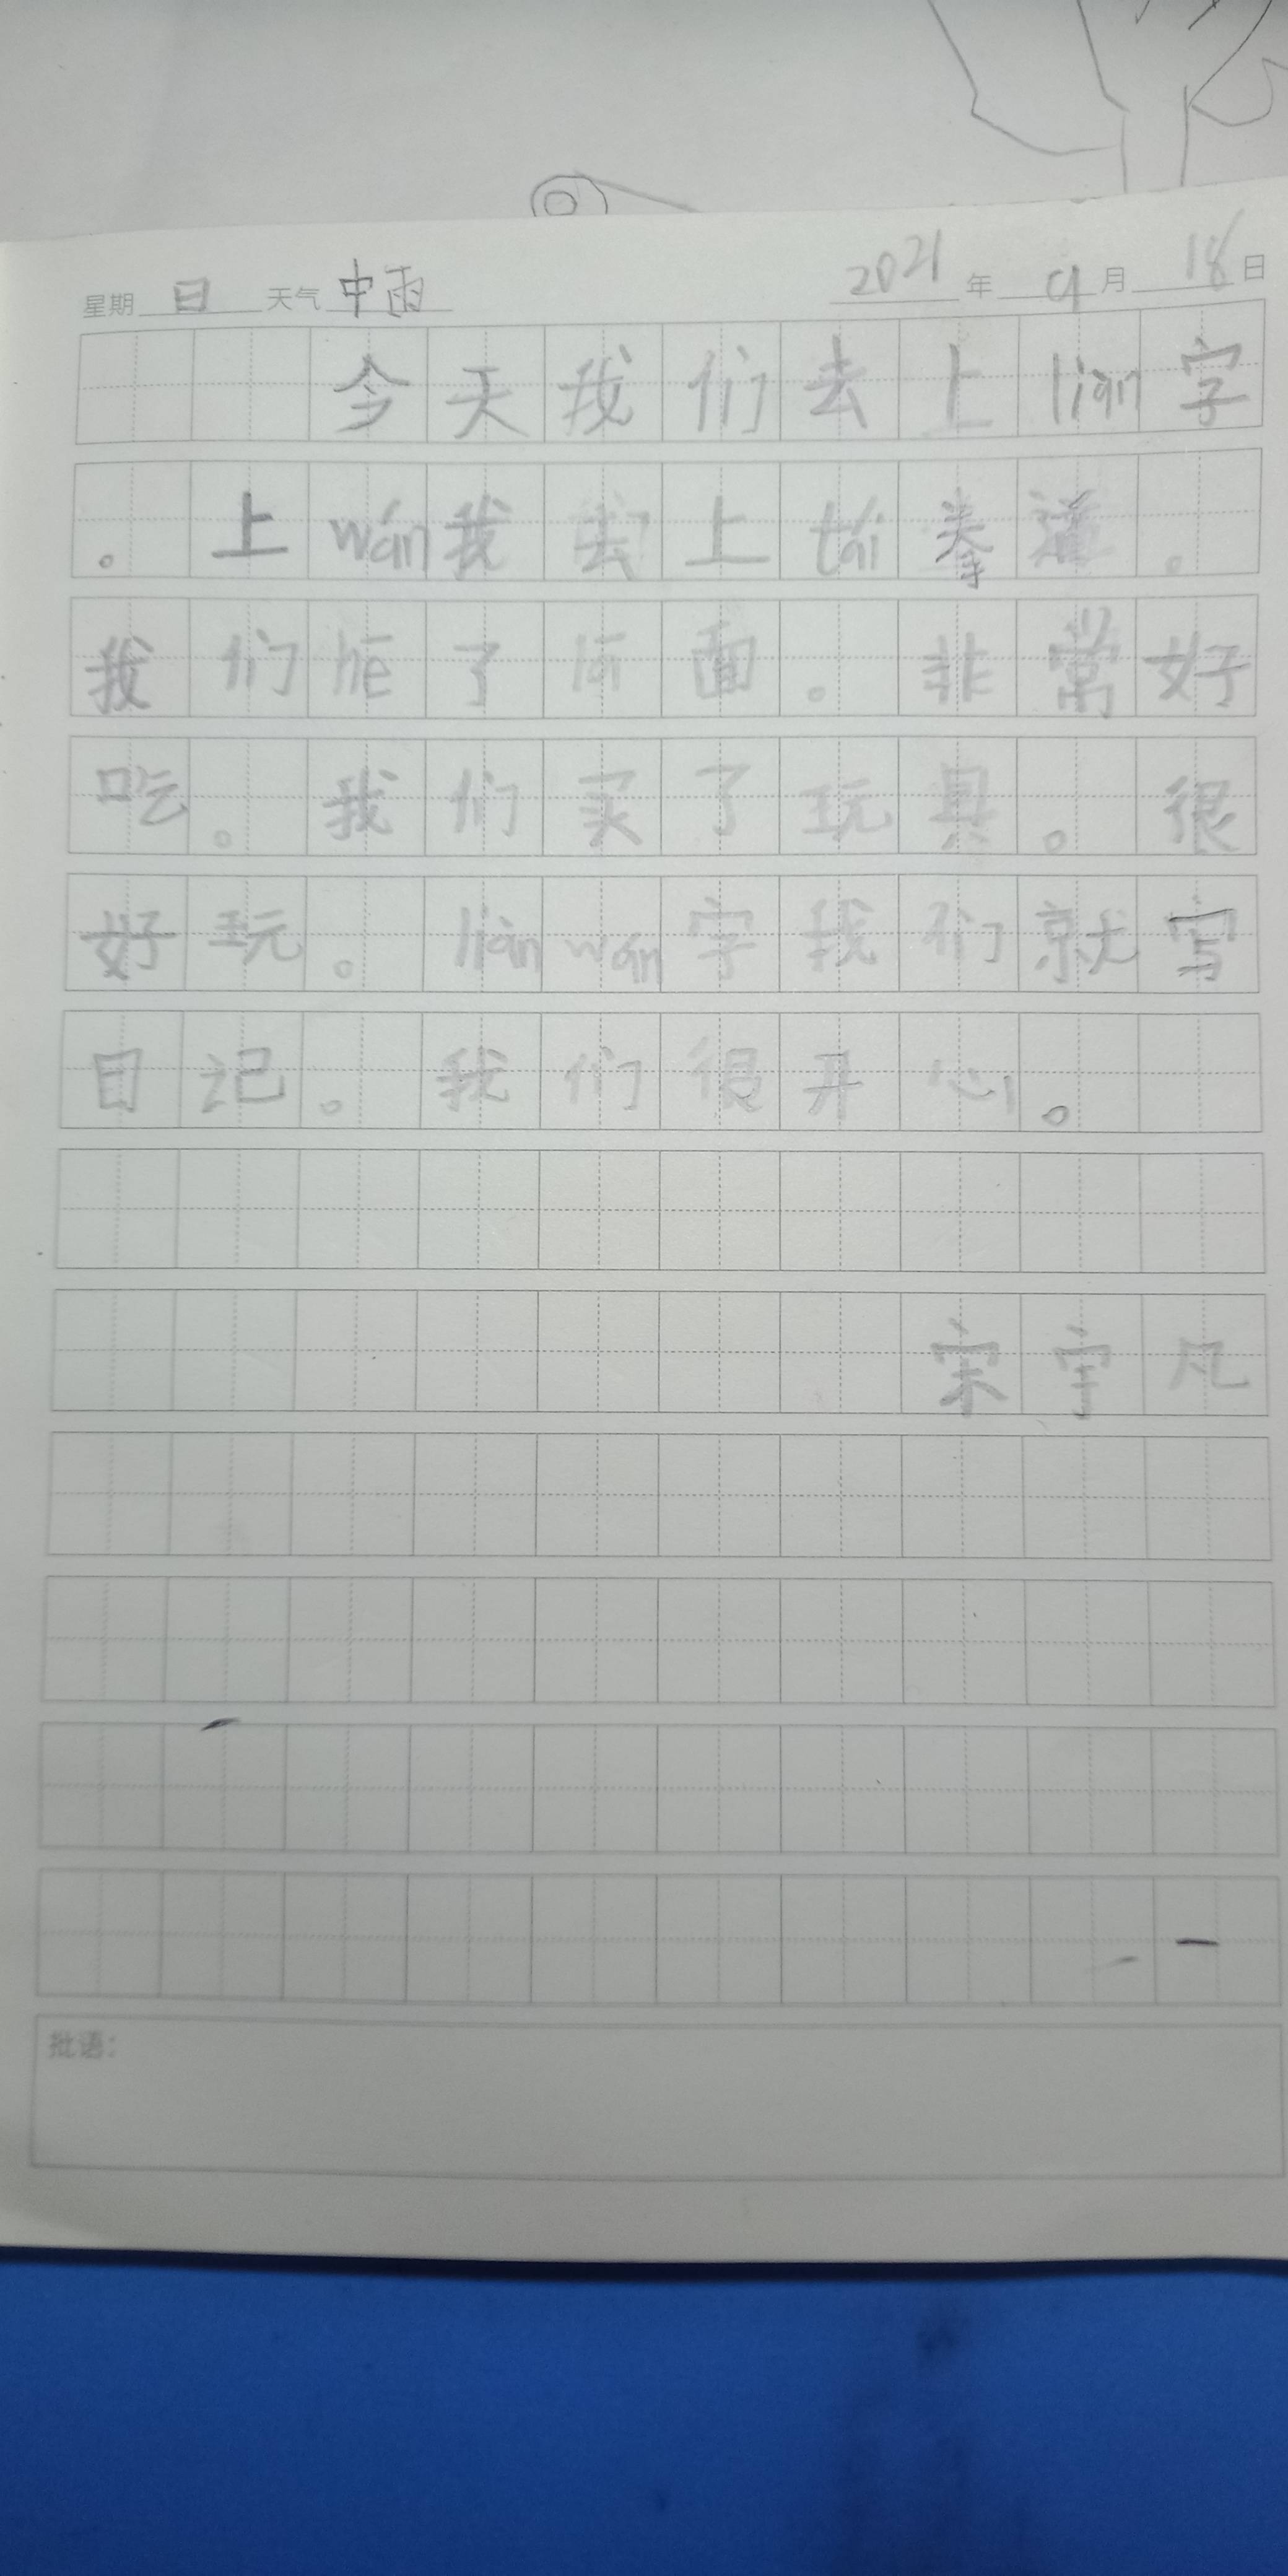 星期 日 天气 中雨 2021 年 9 月 18 日
今天我们去上liàn字
。上wán我去上tái拳道。
我们hē了 面。非常好
吃。我们买了玩具。很
好玩。liàn wán字我们就写
日记。我们很开心。
宋宇凡
批语: